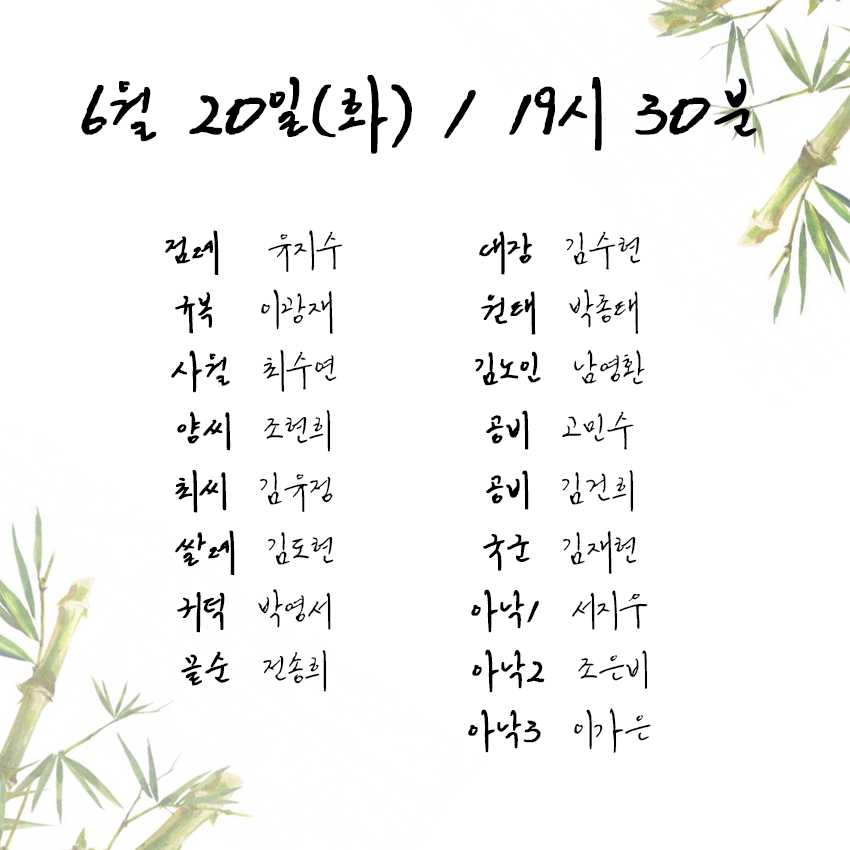 6월 20일(화) / 19시 30분
점례 유지수
규복 이광재
사월 최수연
양씨 조현희
최씨 김유정
쌀례 김도현
귀덕 박영서
끝순 전송희
대장 김수현
원태 박종태
김노인 남영환
공비 고민수
공비 김건희
국군 김재현
아낙1 서지우
아낙2 조은비
아낙3 이가은